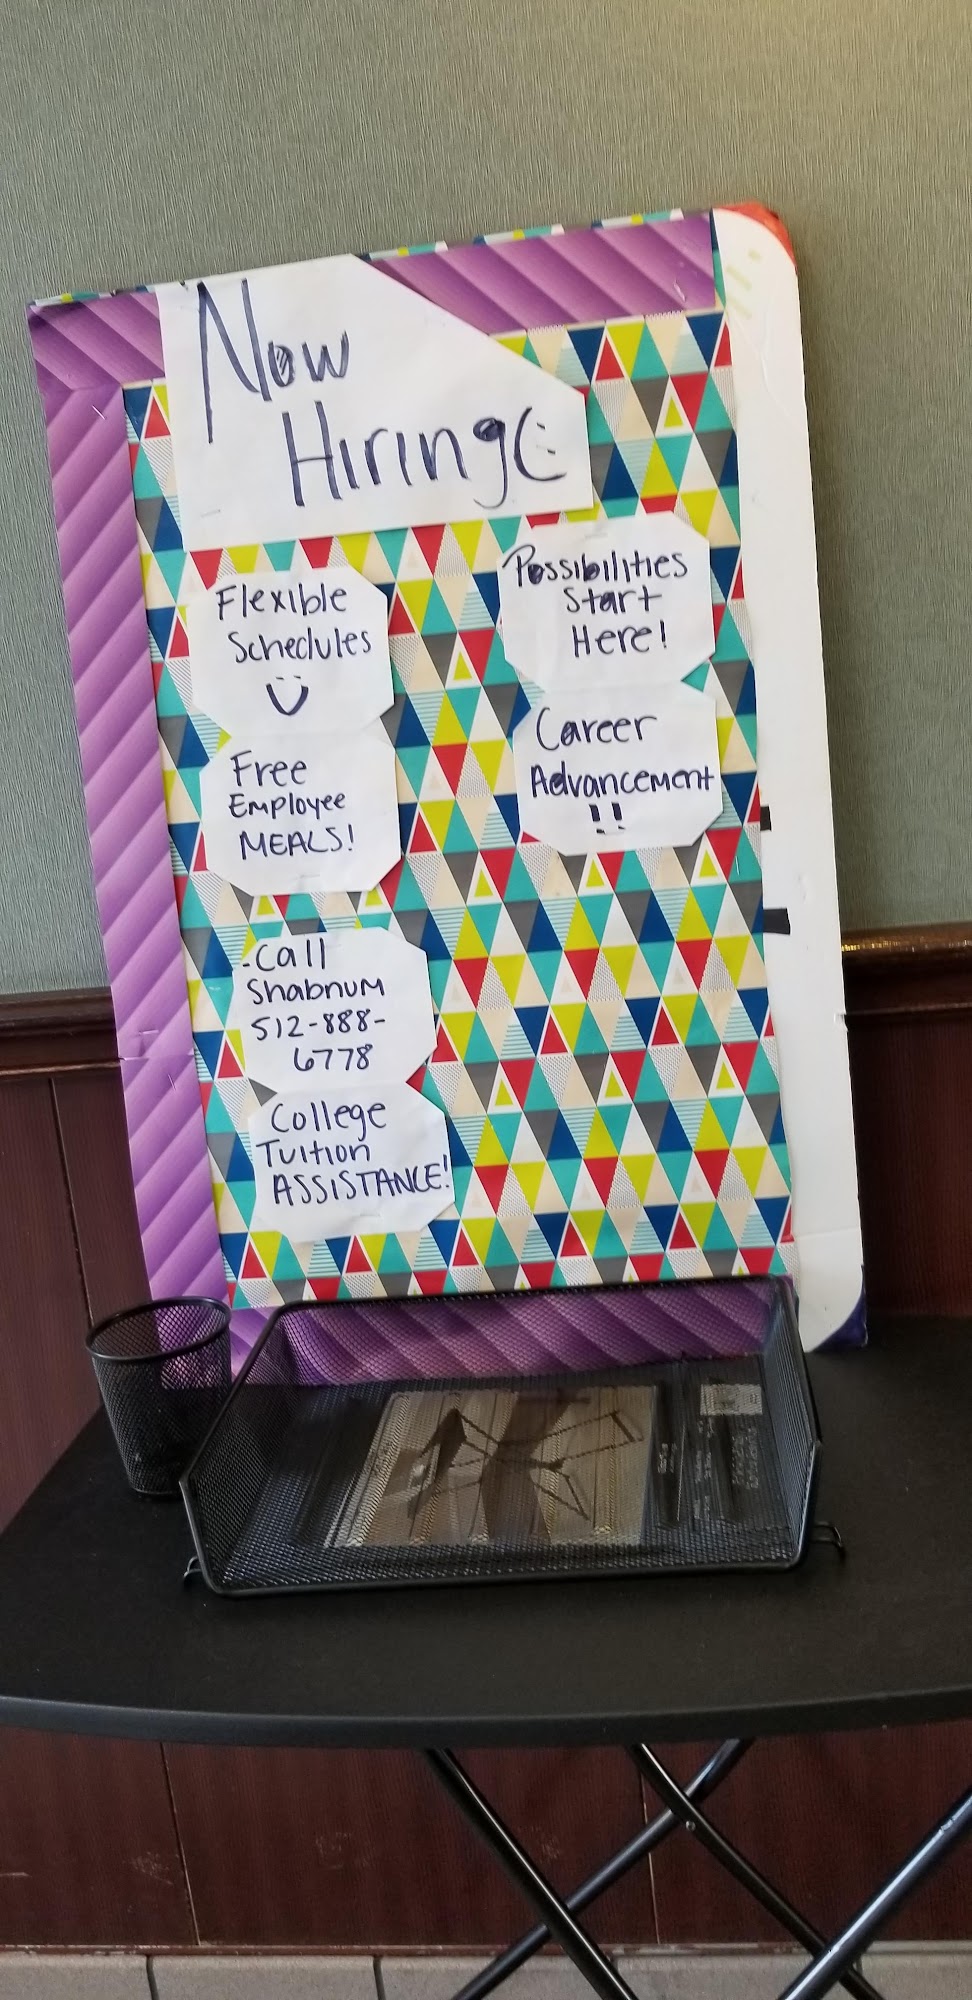 Now
Hiring(:
Flexible
Schedules
Free
Employee
MEALS!
-Call
Shabnum
512-888-
6778
College
Tuition
ASSISTANCE!
Possibilities
Start
Here!
Career
Advancement
!!